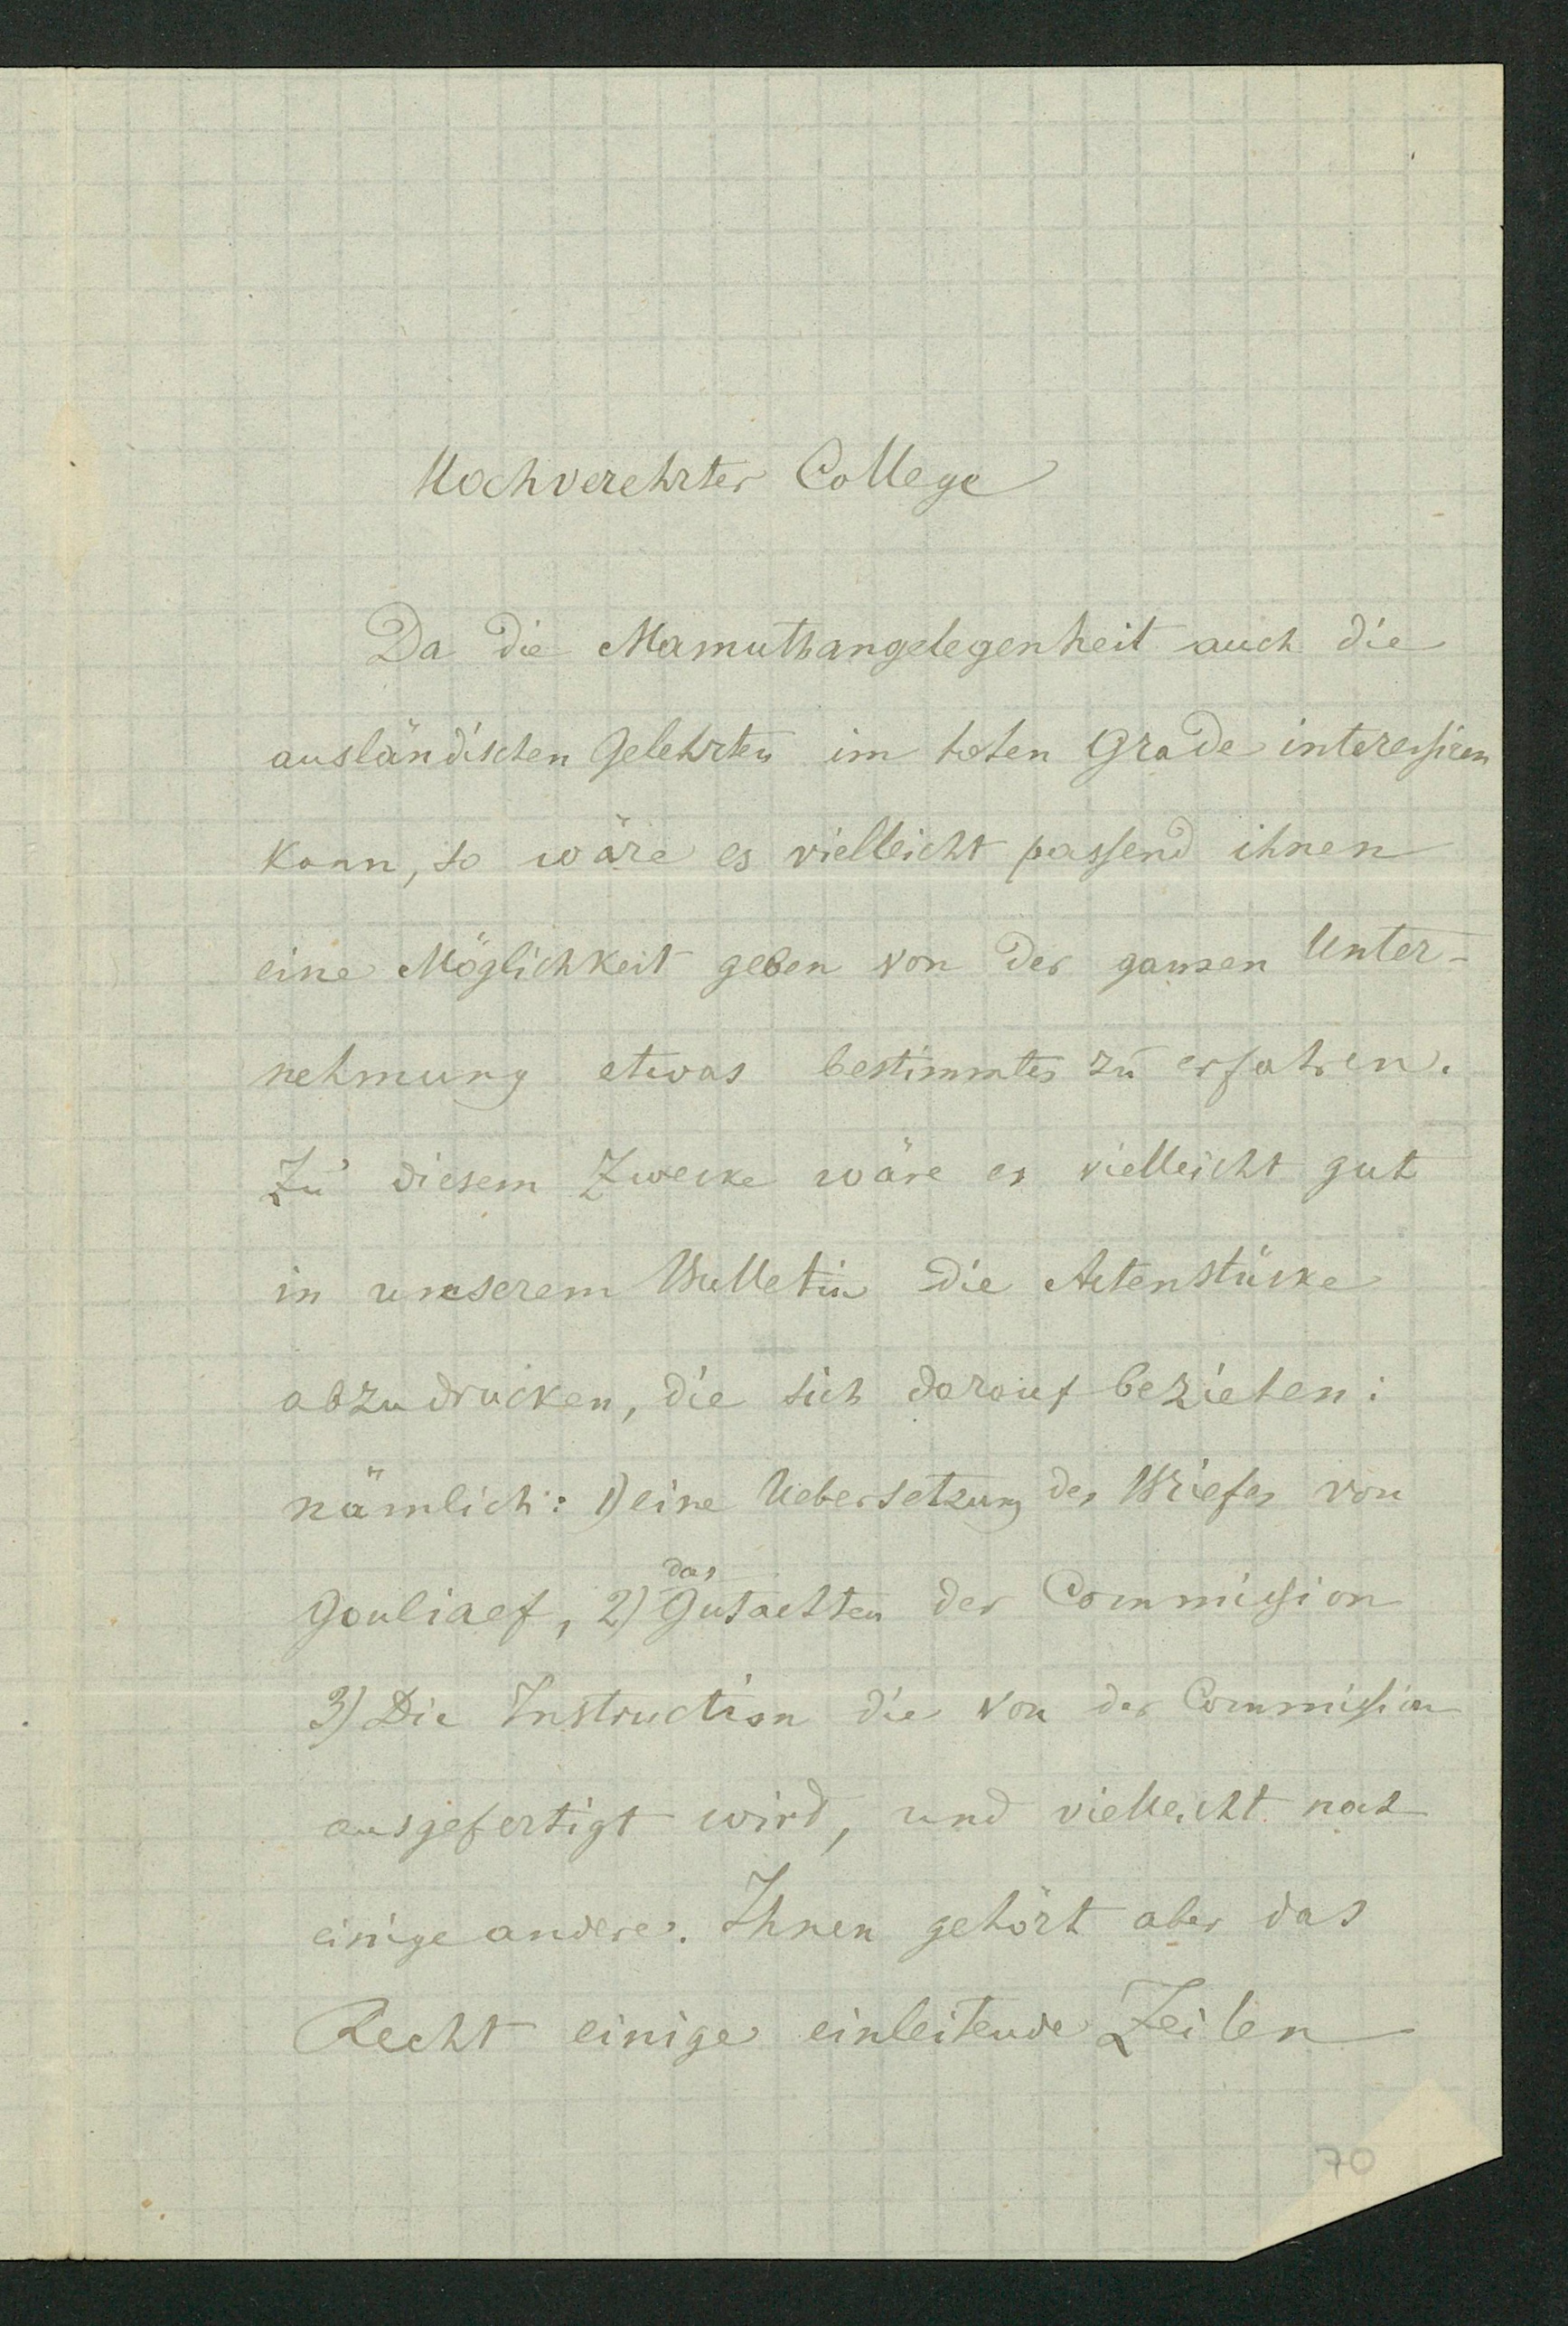 Hochverehrter College
Da die Mamuthangelegenheit auch die
ausländischen Gelehrten im hohen Grade interessiren
kann, so wäre es vielleicht passend ihnen
eine Möglichkeit geben von der ganzen Unter-
nehmung etwas bestimmtes zu erfahren.
Zu diesem Zwecke wäre es vielleicht gut
in unserem Bulletin die Actenstücke
abzudrucken, die sich darauf beziehen:
nämlich: 1) eine Uebersetzung des Briefes von
das
Gouliaef, 2) Gutachten der Commission
3) Die Instruction die von der Commission
ausgefertigt wird, und vielleicht noch
einige andere. Ihnen gehört aber das
Recht einige einleitende Zeilen
70